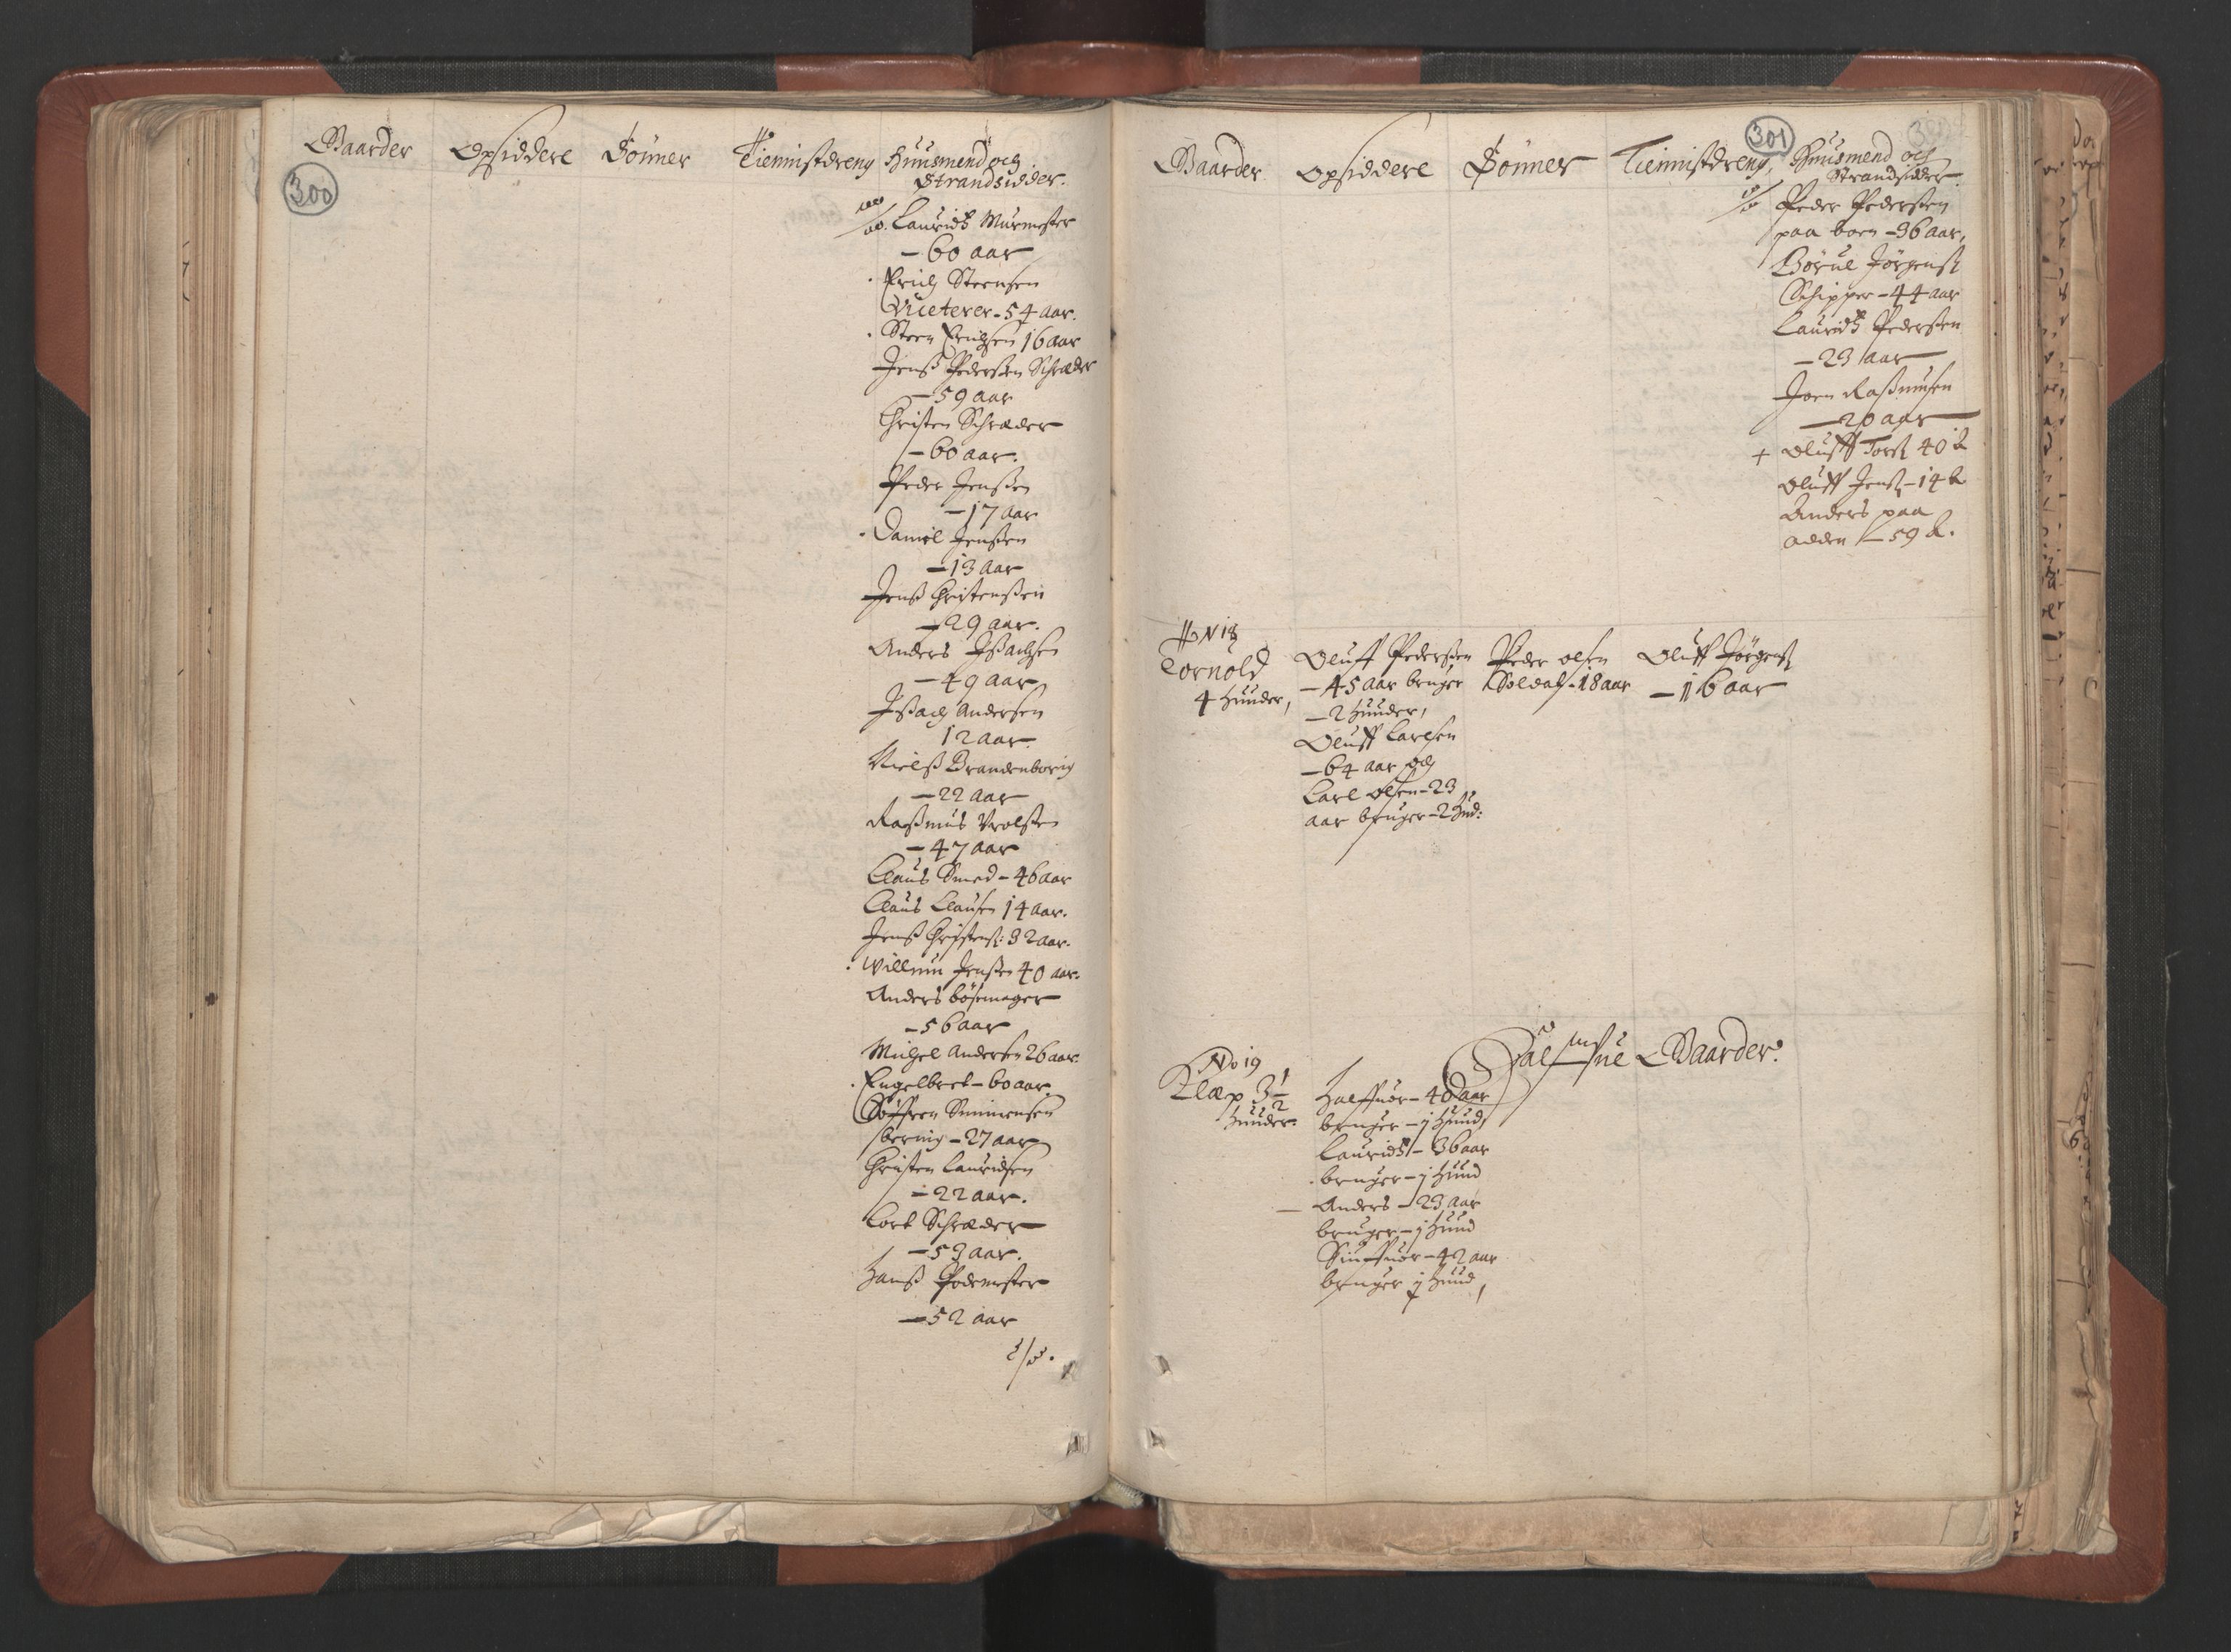 Gaarder Opsiddere Sönner Tiennistdreng Huusmend och
Strandsidder.
300
Lauridtz Murmester
- 60 aar
Erich Steensen
Victerer - 54 aar.
Steen Erichsen 16 aar
Jenß Pederßen Schræder
- 59 aar
Christen Schræder
- 60 aar.
Peder Jenßen
- 17 aar
Daniel Jenßen
- 13 aar
Jenß Christenßen
- 29 aar.
Anders Jßachsen
- 49 aar
Jßach Andersen
12 aar.
Nielß Brandenborig
- 22 aar
Raßmus Wolßen
- 47 aar
Claus Smed - 46 aar
Claus Clausen 14 aar.
Jenß Christenß: 32 aar.
Willum Jenßen 40 aar.
Anders bösemager
- 56 aar
Michel Andersen 26 aar.
Engelbret - 60 aar
Söffren Simmensen
bering - 27 aar
Christen Lauridsen
- 22 aar.
Cort Schræder
- 53 aar.
Hanß Podemester
- 52 aar
Gaarder Opsiddere Sönner Tiennistdreng, Huusmend och
Strandsidder.
301
Peder Pederßen
paa boen - 36 aar,
Börie Jörgenß
Schipper - 44 aar
Lauridtz Pederßen
- 23 aar
Joen Raßmusen
- 20 aar
+ Oluff Torß 40 a
Oluff Jenß - 14 a
Anders paa
odden - 59 a.
No 18
Tornold
4 Hunder,
Oluff Pederßen
- 45 aar bruger
- 2 Hunder,
Oluff Larsen
- 64 aar och
Carl Olsen - 23
aar bruger - 2 Hud:
Peder Olsen
Soldat - 18 aar
Oluff Jörgenß
- 16 aar
Gaarder.
No 19
Klæp 3 1/2
Hunder.
Halffuor - 40 aar
bruger - j Hund
Lauridtz - 36 aar
bruger - j Hund
Anders - 23 aar
bruger - j Hund
Siuffuor - 42 aar
bruger j Hund,